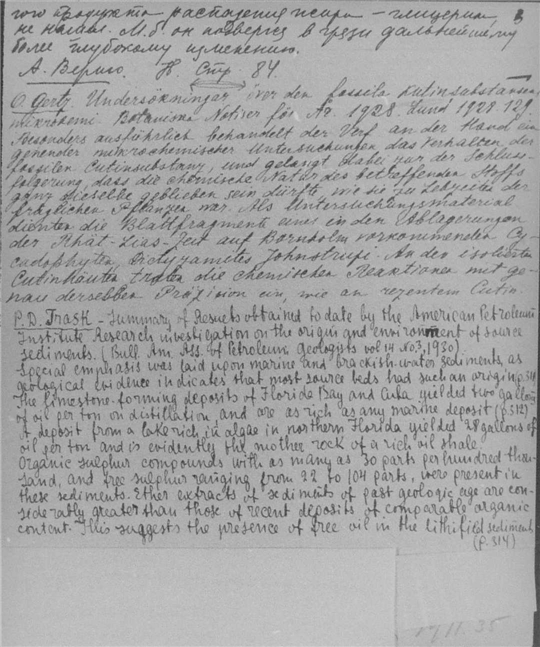 того продукта распадения жира – глицерина, в
не нашли. М.б. он подвергся в грязи дальнейшему
более глубокому изменению.
А. Верно. Н. Стр. 84.
O. Gertz. Undersökningar över den fossila kutinsubstansen
mikrokemi. Botaniska Notiser för År 1928. Lund 1928. 129.
Besonders ausführlich behandelt der Verf. an der Hand ein
gehender mikrochemischer Untersuchungen das Verhalten der
fossilen Cutinsubstanz, und gelangt dabei zur der Schluss-
folgerung, dass die chemische Natur des betreffenden Stoffs
ganz dieselbe geblieben sein dürfte, wie sie zu Lebzeiten der
fraglichen Pflanzen war. Als Untersuchungsmaterial
dienten die Blattfragmente eines in den Ablagerungen
der Rhät-Lias-Zeit auf Bornholm vorkommenden Cy-
cadophyten, Dictyzamites Johnstrupi. An den isolierten
Cutinhäuten traten die chemischen Reaktionen mit ge-
nau derselben Präzision ein, wie an rezentem Cutin.
P.D. Trask – Summary of Results obtained to date by the American Petroleum
Institute Research investigation on the origin and environment of source
sediments. (Bull. Am. Ass. of Petroleum Geologists vol 14 No 3, 1930).
Special emphasis was laid upon marine and brackish-water sediments, as
geological evidence indicates that most source beds had such an origin (p. 311)
The limestone-forming deposits of Florida Bay and Cuba yielded two gallons
of oil per ton on distillation and are as rich as any marine deposit (p. 312)
A deposit from a lake rich in algae in northern Florida yielded 28 gallons of
oil per ton and is evidently the mother rock of a rich oil shale.
Organic sulphur compounds with as many as 30 parts per hundred thou-
sand, and free sulphur ranging from 22 to 104 parts, were present in
these sediments. Ether extracts of sediments of past geologic age are con-
siderably greater than those of recent deposits of comparable organic
content. This suggests the presence of free oil in the lithified sediments
(p. 314)
11. 35